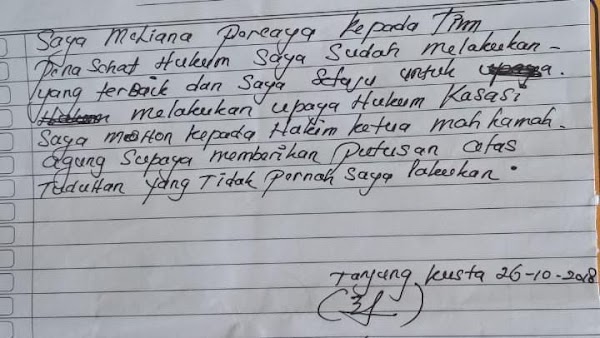 Saya Meliana Percaya kepada Tim
Pena Sehat Hukum Saya Sudah melakukan -
yang terBaik dan Saya Setuju untuk
melakukan upaya Hukum Kasasi
Saya moHon kepada Hakim ketua mahkamah.
agung Supaya memberikan putusan atas
TuduHan yang Tidak Pernah Saya lakukan.
Tanjung kusta 26-10-2018